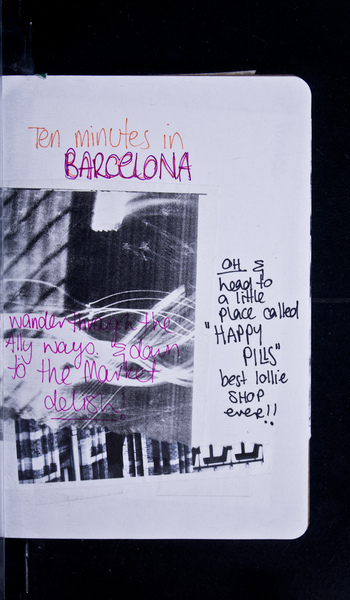 Ten minutes in
BARCELONA
wander through the
Ally ways & down
to the Market
delish
OH &
head to
a little
place called
"HAPPY
PILLS"
best lollie
SHOP
ever!!